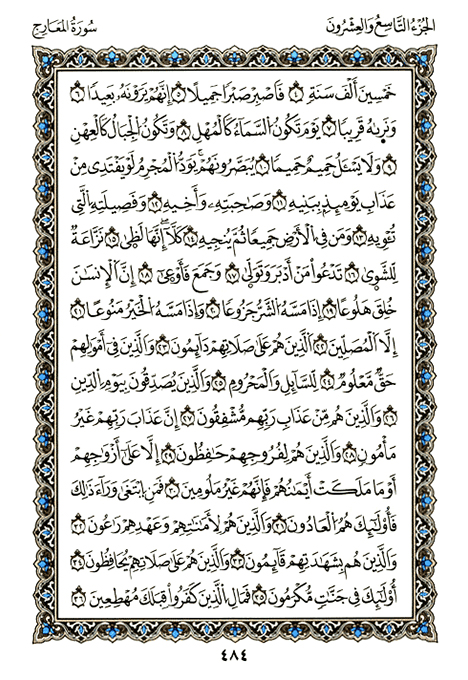 الجزء التاسع والعشرون
سورة المعارج
خَمْسِينَ أَلْفَ سَنَةٍ ٤ فَاصْبِرْ صَبْرًا جَمِيلًا ٥ إِنَّهُمْ يَرَوْنَهُ بَعِيدًا ٦
وَنَرَىٰهُ قَرِيبًا ٧ يَوْمَ تَكُونُ السَّمَاءُ كَالْمُهْلِ ٨ وَتَكُونُ الْجِبَالُ كَالْعِهْنِ
٩ وَلَا يَسْـَٔلُ حَمِيمٌ حَمِيمًا ١٠ يُبَصَّرُونَهُمْ يَوَدُّ الْمُجْرِمُ لَوْ يَفْتَدِى مِنْ
عَذَابِ يَوْمِئِذٍۭ بِبَنِيهِ ١١ وَصَٰحِبَتِهِ وَأَخِيهِ ١٢ وَفَصِيلَتِهِ الَّتِى
تُـْٔوِيهِ ١٣ وَمَن فِى الْأَرْضِ جَمِيعًا ثُمَّ يُنجِيهِ ١٤ كَلَّا إِنَّهَا لَظَىٰ ١٥ نَزَّاعَةً
لِّلشَّوَىٰ ١٦ تَدْعُوا مَنْ أَدْبَرَ وَتَوَلَّىٰ ١٧ وَجَمَعَ فَأَوْعَىٰ ١٨ إِنَّ الْإِنسَٰنَ
خُلِقَ هَلُوعًا ١٩ إِذَا مَسَّهُ الشَّرُّ جَزُوعًا ٢٠ وَإِذَا مَسَّهُ الْخَيْرُ مَنُوعًا ٢١
إِلَّا الْمُصَلِّينَ ٢٢ الَّذِينَ هُمْ عَلَىٰ صَلَاتِهِمْ دَآئِمُونَ ٢٣ وَالَّذِينَ فِى أَمْوَٰلِهِمْ
حَقٌّ مَّعْلُومٌ ٢٤ لِّلسَّآئِلِ وَالْمَحْرُومِ ٢٥ وَالَّذِينَ يُصَدِّقُونَ بِيَوْمِ الدِّينِ
٢٦ وَالَّذِينَ هُم مِّنْ عَذَابِ رَبِّهِم مُّشْفِقُونَ ٢٧ إِنَّ عَذَابَ رَبِّهِمْ غَيْرُ
مَأْمُونٍ ٢٨ وَالَّذِينَ هُمْ لِفُرُوجِهِمْ حَٰفِظُونَ ٢٩ إِلَّا عَلَىٰ أَزْوَٰجِهِمْ
أَوْ مَا مَلَكَتْ أَيْمَٰنُهُمْ فَإِنَّهُمْ غَيْرُ مَلُومِينَ ٣٠ فَمَنِ ابْتَغَىٰ وَرَآءَ ذَٰلِكَ
فَأُو۟لَٰٓئِكَ هُمُ الْعَادُونَ ٣١ وَالَّذِينَ هُمْ لِأَمَٰنَٰتِهِمْ وَعَهْدِهِمْ رَٰعُونَ ٣٢
وَالَّذِينَ هُم بِشَهَٰدَٰتِهِمْ قَآئِمُونَ ٣٣ وَالَّذِينَ هُمْ عَلَىٰ صَلَاتِهِمْ يُحَافِظُونَ ٣٤
أُو۟لَٰٓئِكَ فِى جَنَّٰتٍ مُّكْرَمُونَ ٣٥ فَمَالِ الَّذِينَ كَفَرُوا قِبَلَكَ مُهْطِعِينَ ٣٦
٤٨٤